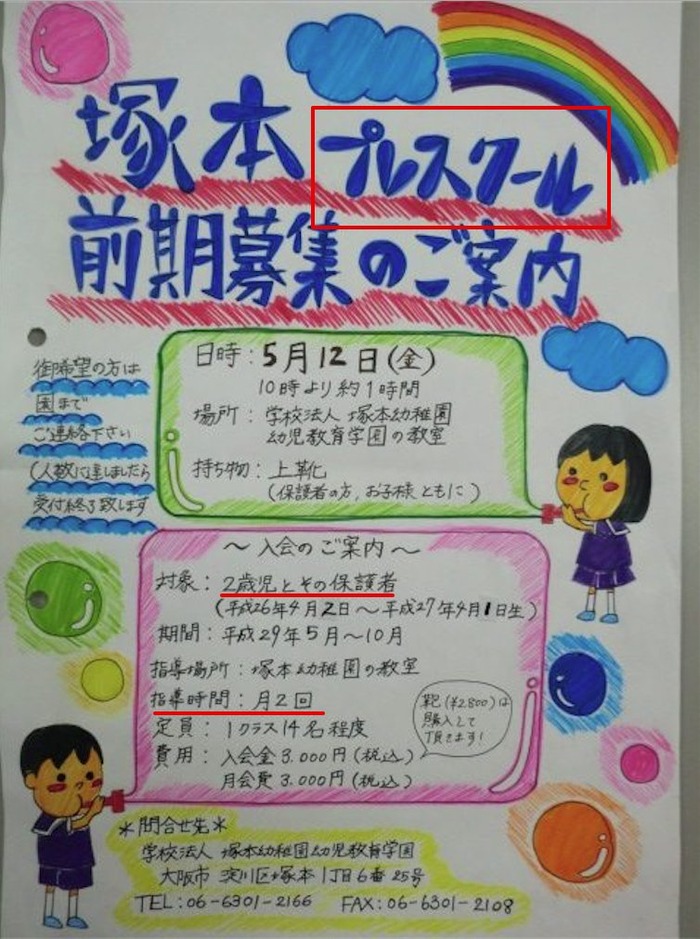 塚本プレスクール
前期募集のご案内
御希望の方は
園まで
ご連絡下さい
(人数に達しましたら
受付終了致します
日時:5月12日(金)
10時より約1時間
場所:学校法人 塚本幼稚園
幼児教育学園の教室
持ち物:上靴
(保護者の方、お子様ともに)
～入会のご案内～
対象:2歳児とその保護者
(平成26年4月2日～平成27年4月1日生)
期間:平成29年5月～10月
指導場所:塚本幼稚園の教室
指導時間:月2回
定員:1クラス14名程度
費用:入会金3.000円(税込)
月会費3.000円(税込)
靴(¥2.800)は
購入して
頂きます!
*問合せ先*
学校法人 塚本幼稚園幼児教育学園
大阪市 淀川区塚本1丁目6番25号
TEL:06-6301-2166 FAX:06-6301-2108